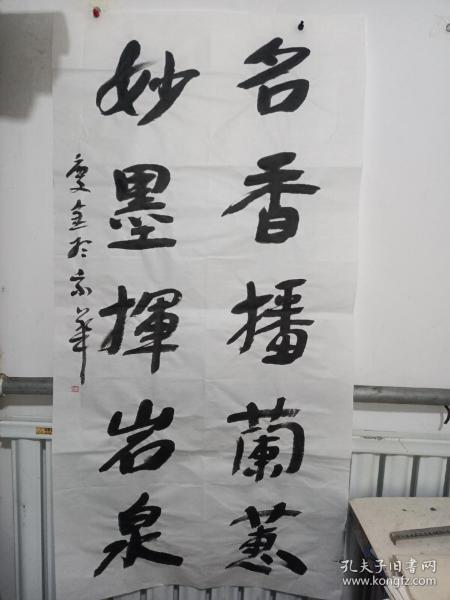 名香播蘭蕙
妙墨揮岩泉
孔夫子旧书网
www.kongfz.com